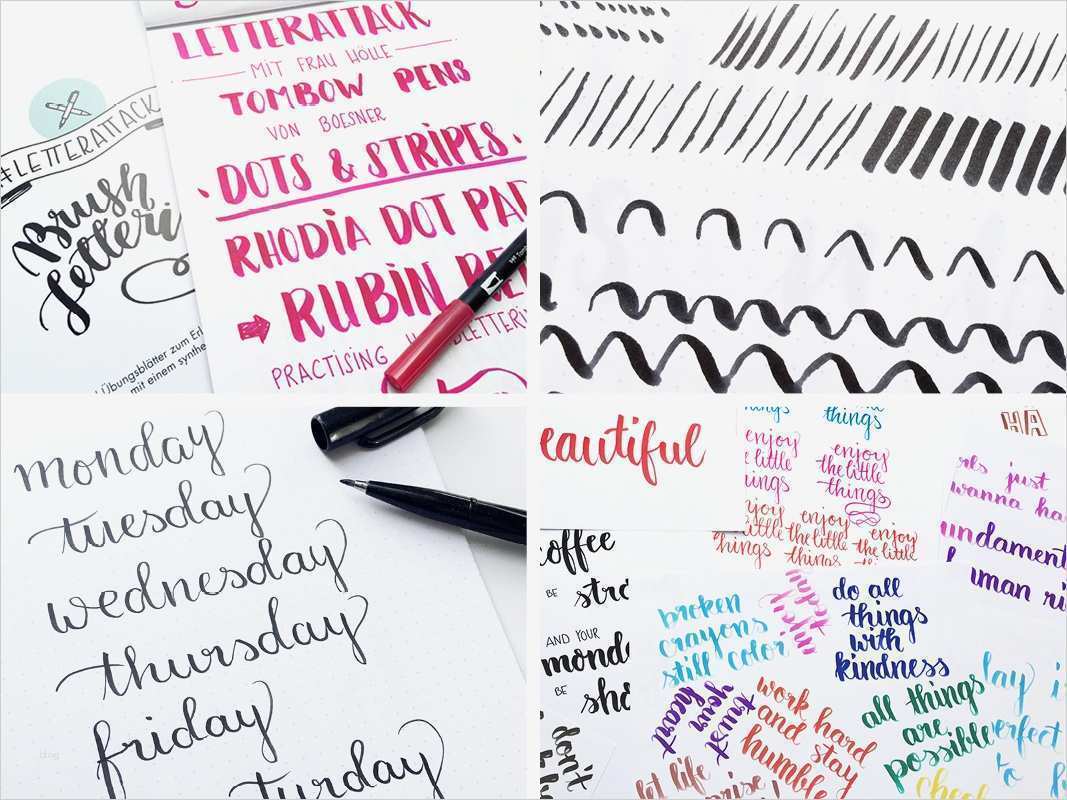 LETTERATTACK
MIT FRAU HÖLLE
TOMBOW PENS
VON BOESNER
DOTS & STRIPES
RHODIA DOT PAD
RUBIN RED
PRACTISING
#LETTERATTACK
Brush
Lettering
Übungsblätter zum Erl
mit einem synthe
monday
tuesday
wednesday
thursday
friday
turday
eautiful
things
things
enjoy
the little
things
enjoy
the little
things
enjoy
the little
things
enjoy
the little
HA
just
wanna ha
undament
uman ri
coffee
BE
AND YOUR
BE
broken
crayons
still color
do all
things
with
kindness
trust
your
heart
work hard
and stay
humble
all things
are
possible
lay i
erfect
don't
let life